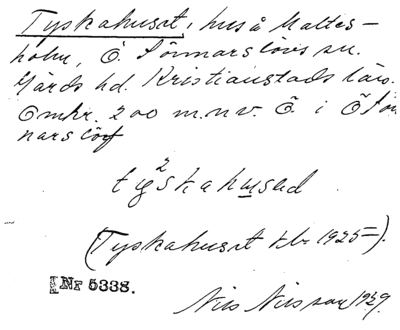 Tyskahuset, hus å Maltes-
holm, Ö. Sönnarslövs sn.
Gärds hd. Kristianstads län.
Omkr. 200 m. n. v. Ö. i Ö Sön
narslöv
ty²skahused
(Tyskahuset kbr 1925-).
Nr 5338.
Nils Nilsson 1929.